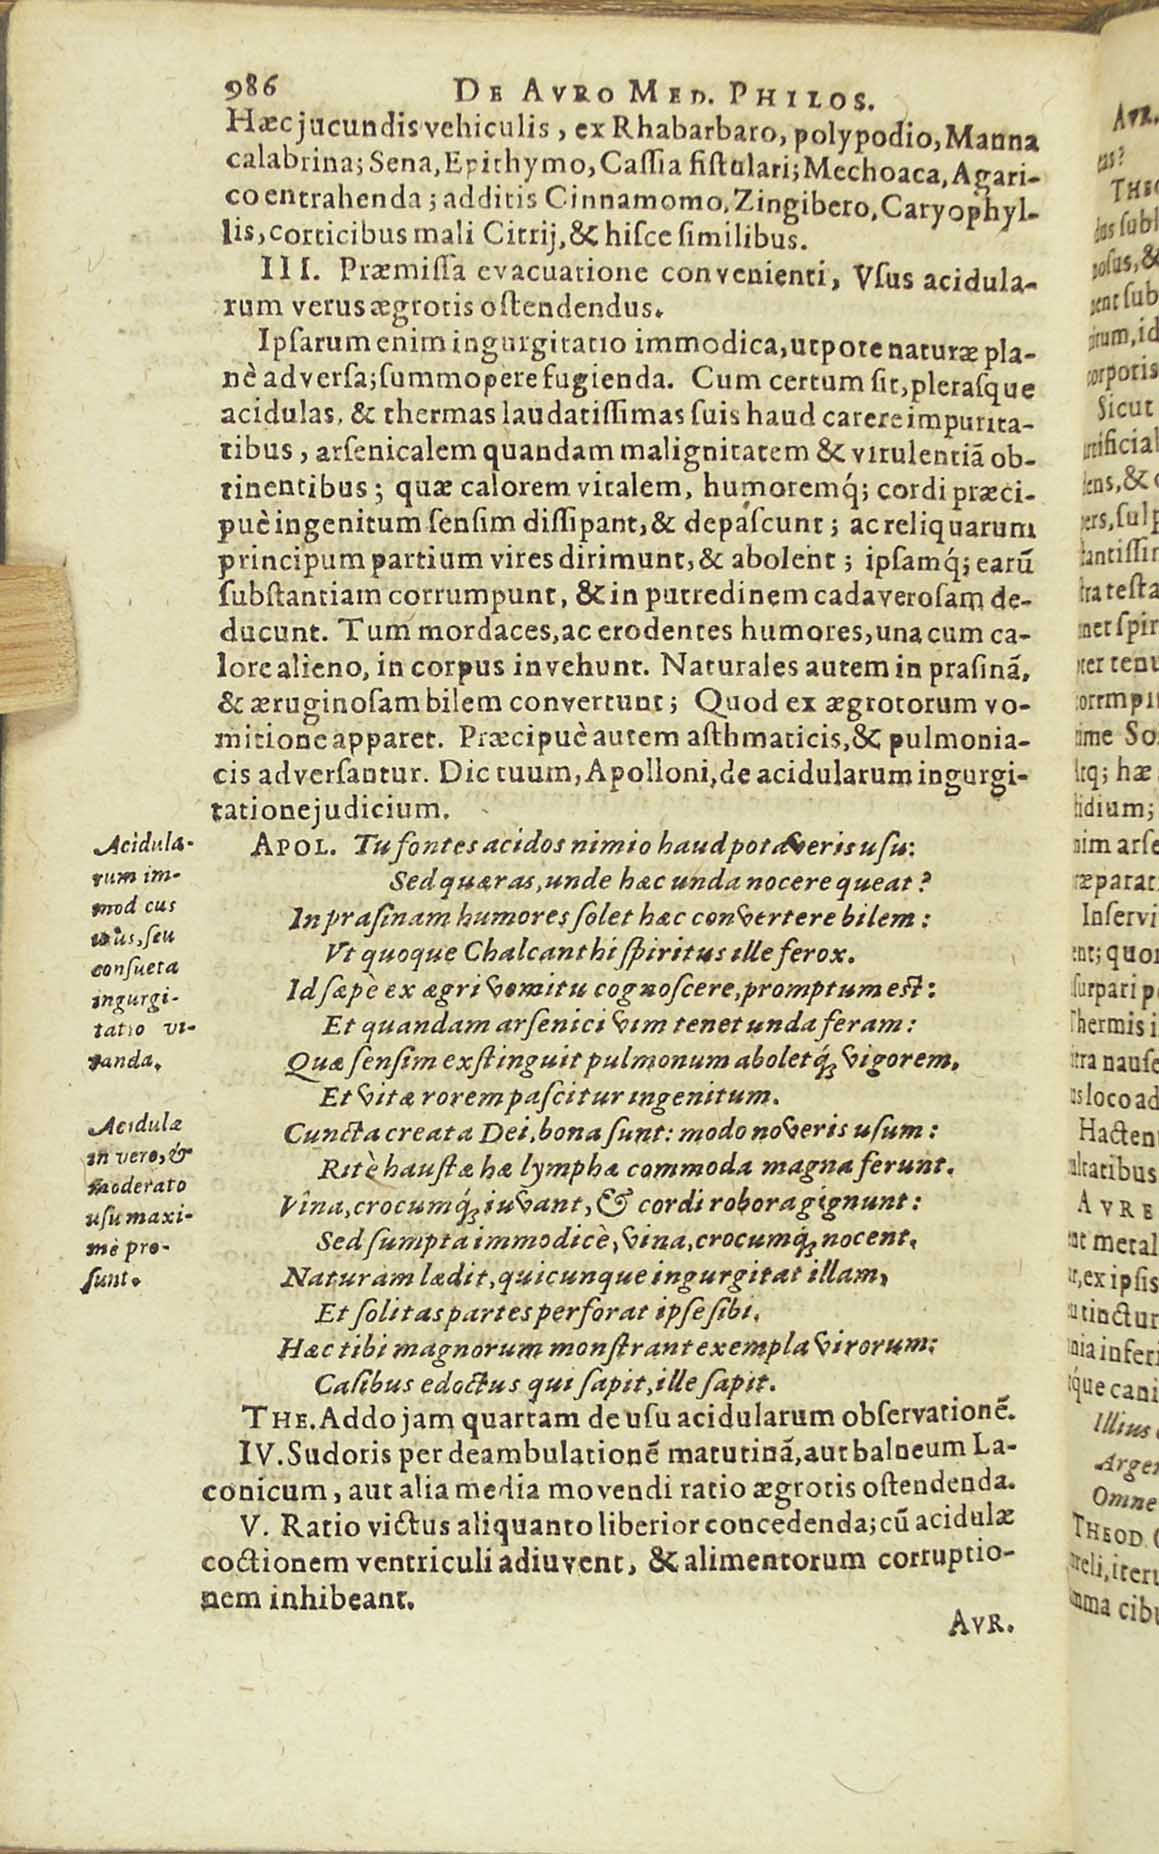 986 DE AVRO MED. PHILOS.
Hæc jucundis vehiculis, ex Rhabarbaro, polypodio, Manna
calabrina; Sena, Epithymo, Caſſia fiſtulari; Mechoaca, Agari-
co entrahenda; additis Cinnamomo, Zingibero, Caryophyl-
lis, corticibus mali Citrij, & hiſce ſimilibus.
III. Præmiſſa evacuatione convenienti, Vſus acidula-
rum verus ægrotis oſtendendus.
Ipſarum enim ingurgitatio immodica, utpote naturæ pla-
nè adverſa; ſummopere fugienda. Cum certum ſit, pleraſque
acidulas, & thermas laudatiſſimas ſuis haud carere impurita-
tibus, arſenicalem quandam malignitatem & virulentiã ob-
tinentibus; quæ calorem vitalem, humoremq́; cordi præci-
puè ingenitum ſenſim diſſipant, & depaſcunt; ac reliquarum
principum partium vires dirimunt, & abolent; ipſamq́; earũ
ſubſtantiam corrumpunt, & in putredinem cadaveroſam de-
ducunt. Tum mordaces, ac erodentes humores, una cum ca-
lore alieno, in corpus invehunt. Naturales autem in praſinã,
& æruginoſam bilem convertunt; Quod ex ægrotorum vo-
mitione apparet. Præcipuè autem aſthmaticis, & pulmonia-
cis adverſantur. Dic tuum, Apolloni, de acidularum ingurgi-
tatione judicium.
Acidula-
rum im-
mod cus
uſus, ſeu
conſueta
ingurgi-
tatio vi-
tanda.
APOL. Tu fontes acidos nimio haud potaveris uſu:
Sed quæras, unde hæc unda nocere queat?
In praſinam humores ſolet hæc convertere bilem:
Vt quoque Chalcanthi ſpiritus ille ferox.
Id ſæpè ex ægri vomitu cognoſcere, promptum eſt:
Et quandam arſenici vim tenet unda feram:
Quæ ſenſim exſtinguit pulmonum aboletq́; vigorem,
Et vitæ rorem paſcitur ingenitum.
Acidulæ
in vero, &
moderato
uſu maxi-
mè pro-
ſunt.
Cuncta creata Dei, bona ſunt: modo noveris uſum:
Ritè hauſtæ hæ lymphæ commoda magna ferunt.
Vina, crocumq́; iuvant, & cordi robora gignunt:
Sed ſumpta immodicè, vina, crocumq́; nocent.
Naturam lædit, quicunque ingurgitat illam,
Et ſolitas partes perforat ipſe ſibi.
Hæc tibi magnorum monſtrant exempla virorum:
Caſibus edoctus qui ſapit, ille ſapit.
THE. Addo jam quartam de uſu acidularum obſervationẽ.
IV. Sudoris per deambulationẽ matutinã, aut balneum La-
conicum, aut alia media movendi ratio ægrotis oſtendenda.
V. Ratio victus aliquanto liberior concedenda; cũ acidulæ
coctionem ventriculi adiuvent, & alimentorum corruptio-
nem inhibeant.
AVR.